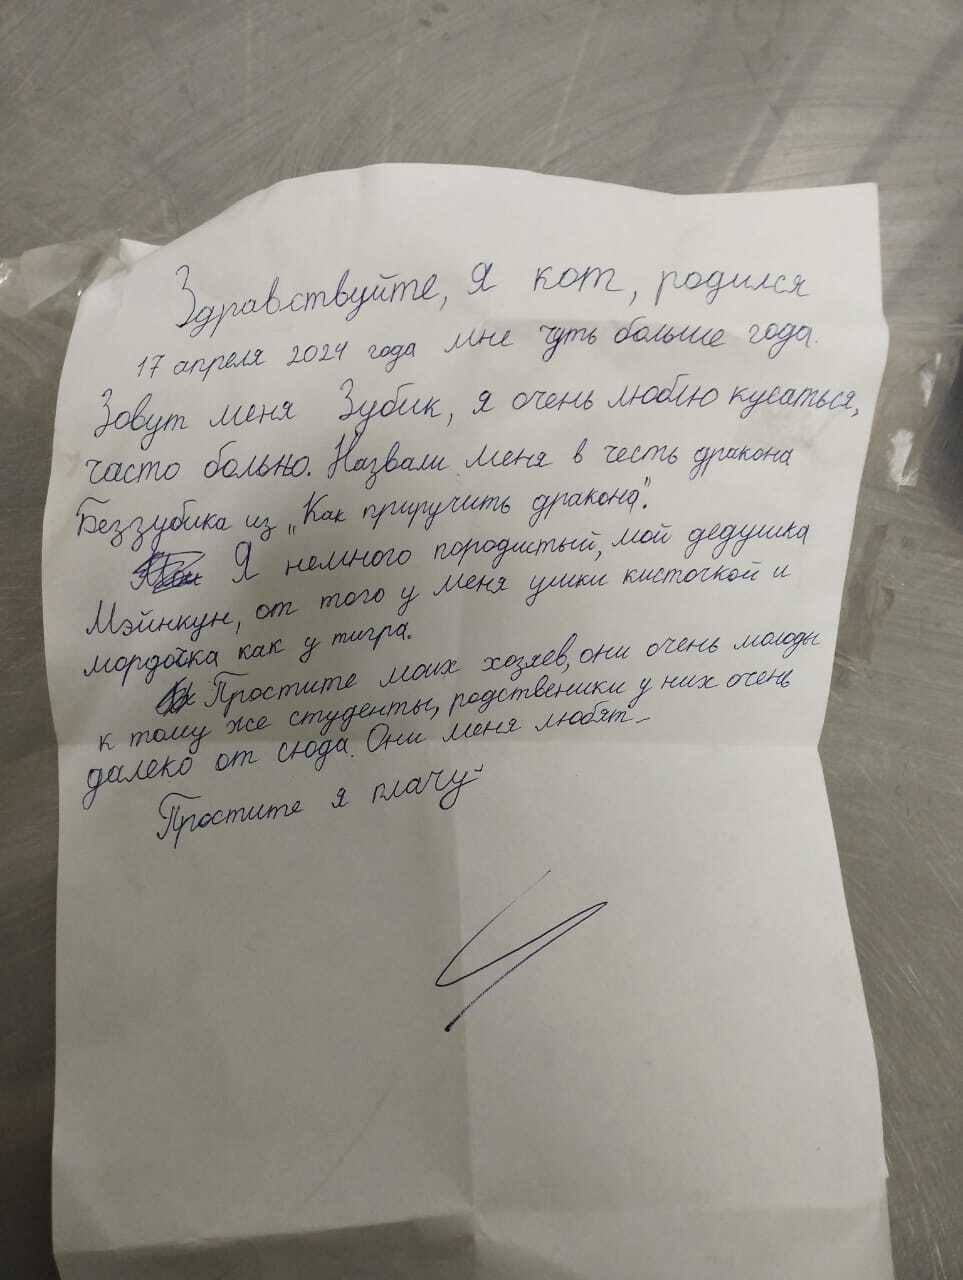 Здравствуйте, я кот, родился
17 апреля 2024 года мне чуть больше года.
Зовут меня Зубик, я очень люблю кусаться,
часто больно. Назвали меня в честь дракона
Беззубика из „Как приручить дракона".
Я немного породистый, мой дедушка
Мэйнкун, от того у меня ушки кисточкой и
мордочка как у тигра.
Простите моих хозяев, они очень молоды
к тому же студенты, родственики у них очень
далеко от сюда. Они меня любят
Простите я плачу